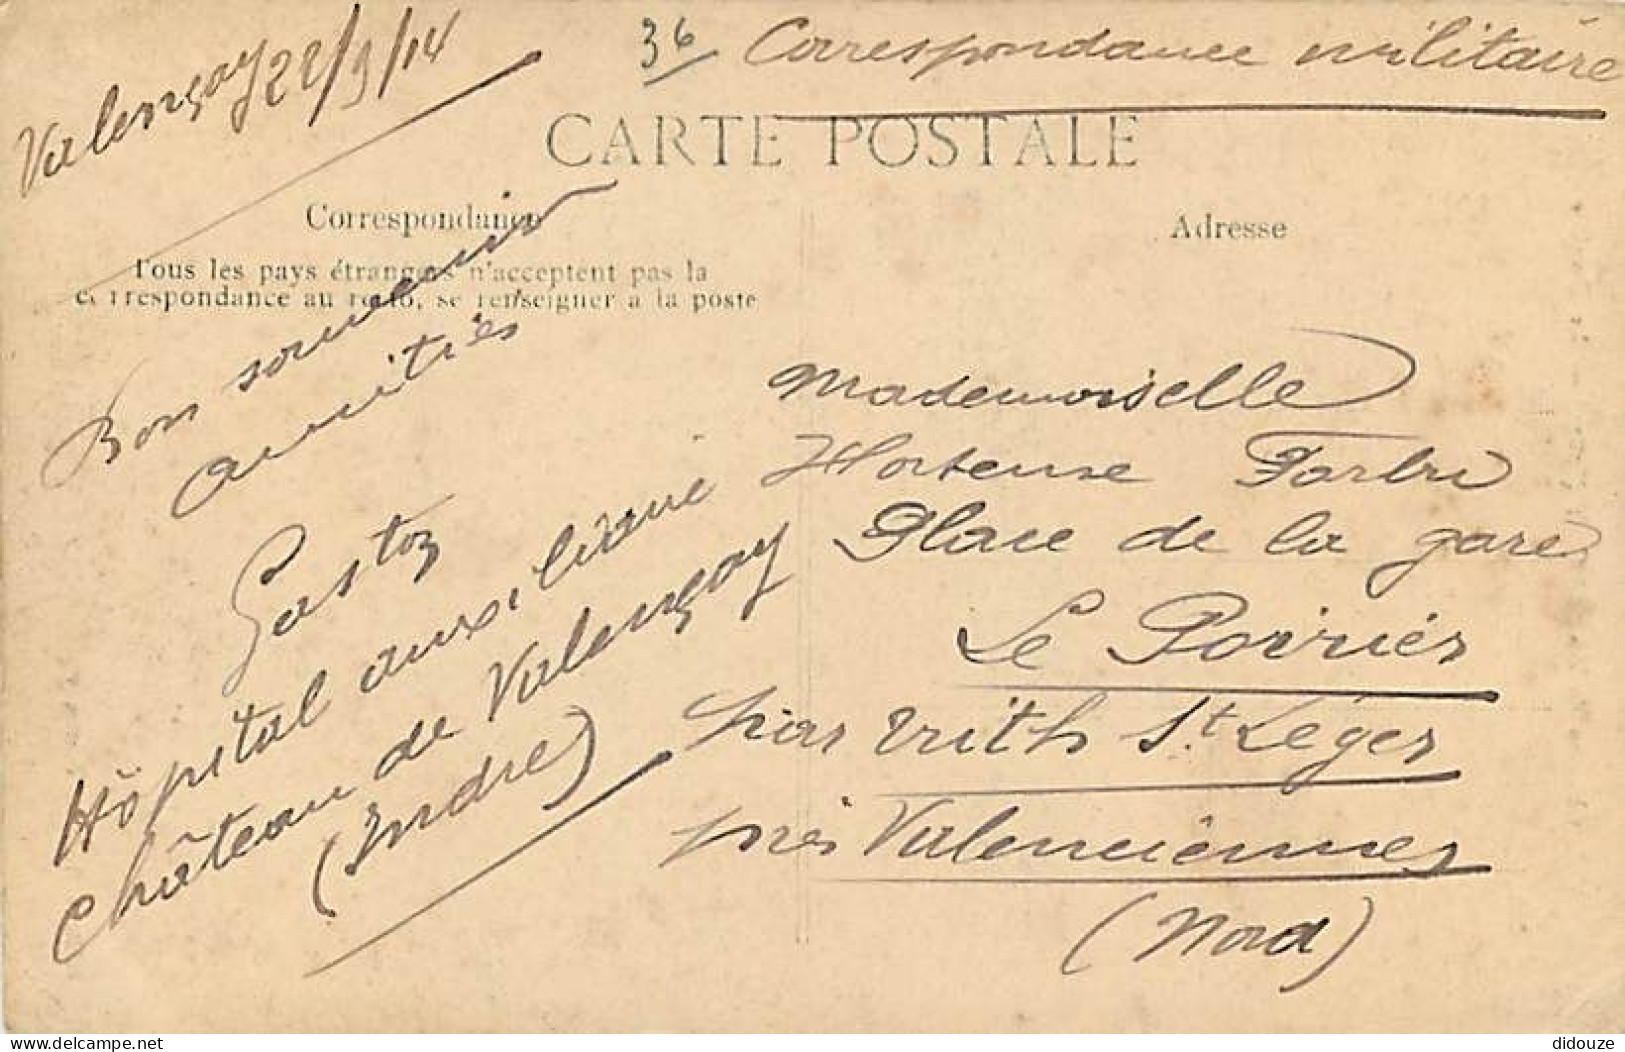 Valençay 22/9/14
36 Correspondance militaire
CARTE POSTALE
Correspondance
Tous les pays étrangers n'acceptent pas la
correspondance au recto, se renseigner à la poste
Bon souvenir
amitiés
Gaston
Hôpital auxiliaire
Château de Valençay
(Indre)
Adresse
Mademoiselle
Hortense
Place de la gare
Le Poirier
par Trith St Léger
près Valenciennes
(Nord)
didouze